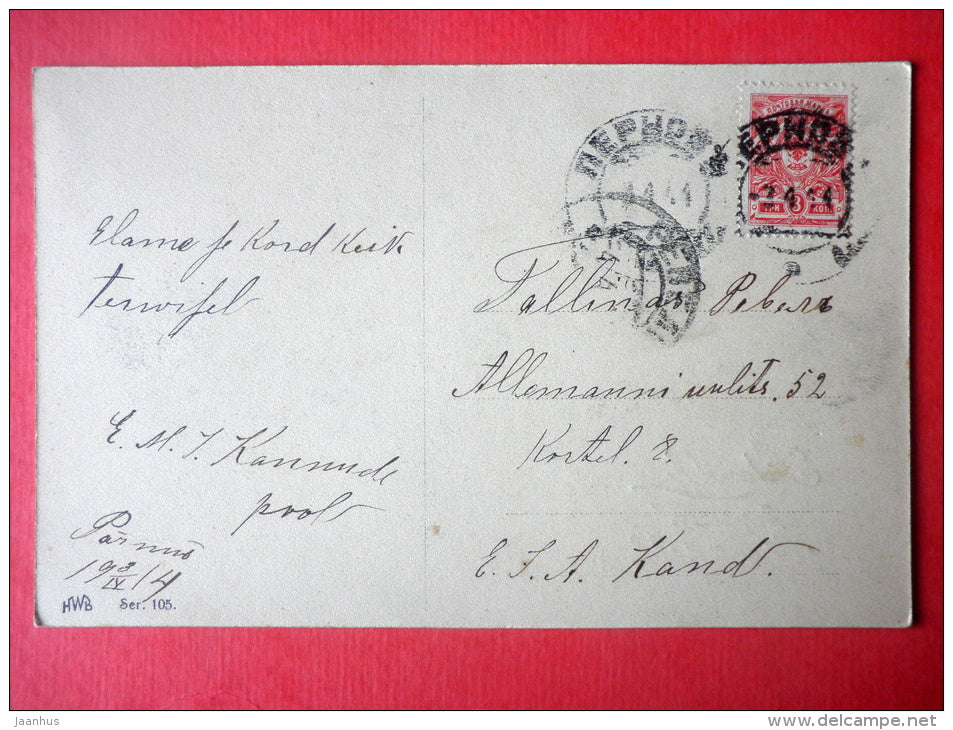 Elame je Kord Keik
terwisel
E. M. J. Kannude
poolt
Pärnus
19 3/IV 14
HWB Ser. 105.
ПЕРНОВ
ЕРНОВ
-2.4.14
ТРИ 3 КОП
Tallinas Rewais
Allemanni uulits. 52
Kortel. 8.
E. J. A. Kand.
Jaanhus
www.delcampe.net